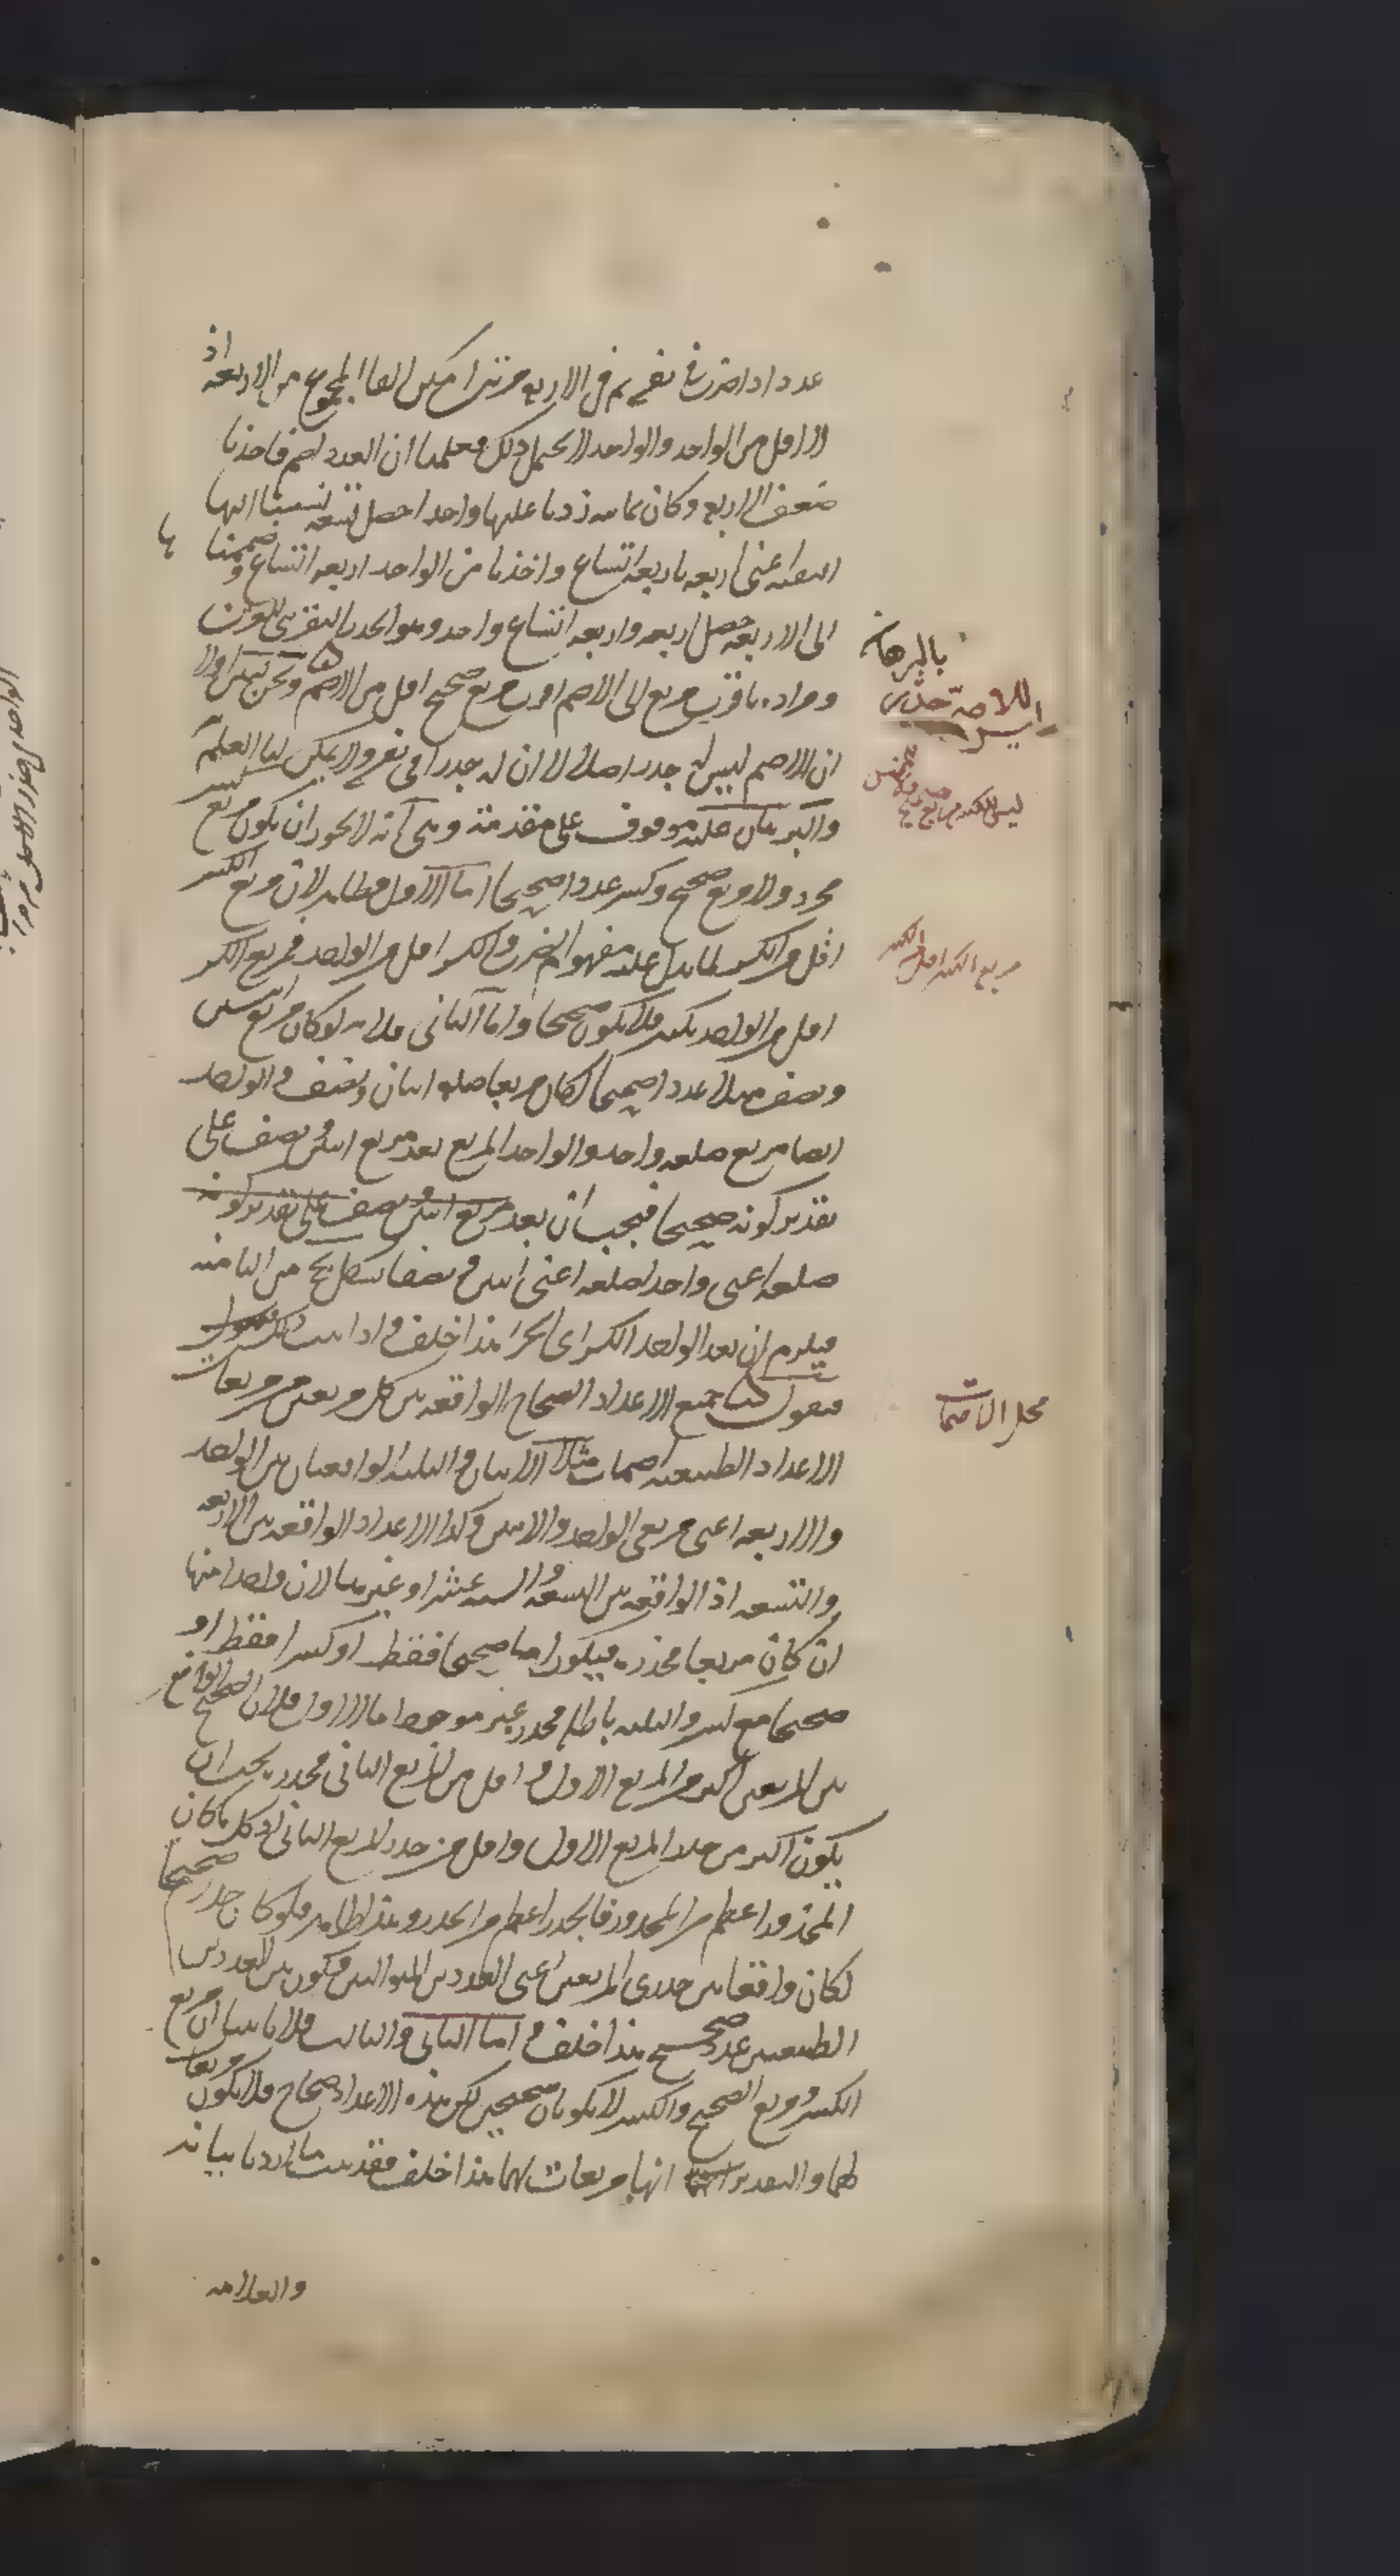 عدد اذا ضرب فى نفسه ثم فى الاربعه مرتين امكن القا المجموع من الاربعه اذ
لا اقل من الواحد والواحد لا يحتمل ذلك فعلمنا ان العدد اصم فاخذنا
ضعف الاربع وكان ثمانيه زدنا عليها واحدا حصل تسعه نسبنا اليها
اعنى اربعه باربعه اتساع واخذنا من الواحد اربعه اتساع وضممنا ها
الى الاربعه حصل اربعه واربعه اتساع واحد وهو الجذر التقريبى
ومراده باقرب مربع الى الاصم اقرب مربع صحيح اقل من الاصم ونحن نبين اولا
ان الاصم ليس له جذر اصلا لا ان له جذرا فى نفسه ولا يمكن لنا العلم به
والبرهان عليه موقوف على مقدمة وهى انه لا يجوز ان يكون مربع كسر
مجرد ولا مربع صحيح وكسر عددا صحيحا اما الاول فظاهر لان مربع الكسر
اقل من الكسر لما يدل عليه مفهوم الضرب والكسر اقل من الواحد فمربع الكسر
اقل من الواحد بكثير فلا يكون صحيحا واما الثانى فلانه لو كان مربع اثنين
ونصف مثلا عددا صحيحا لكان مربعا ضلعه اثنان ونصف والواحد
ايضا مربع ضلعه واحد والواحد المربع يعد مربع اثنين ونصف على
تقدير كونه صحيحا فيجب ان يعد
ضلعه اعنى واحدا ضلعه اعنى اثنين ونصفا بشكل يح من الثامنه
فيلزم ان يعد الواحد الكسر اى الجزء هذا خلف واذا ثبت ذلك
فنقول جميع الاعداد الصحاح الواقعه بين كل مربعين من مربعات
الاعداد الطبيعيه اصمات مثلا الاثنان والثلثه الواقعان بين الواحد
والاربعه اعنى مربعى الواحد والاثنين وكذا الاعداد الواقعه بين الاربعه
والتسعه او الواقعه بين التسعه والسته عشر او غيرها لان واحدا منها
ان كان مربعا فجذره يكون اما صحيحا فقط او كسرا فقط او
صحيحا مع كسر والثلثه باطله فجذره غير موجود اما الاول فلان الصحيح الواقع
بين المربعين اكبر من المربع الاول واقل من المربع الثانى فجذره يجب ان
يكون اكبر من جذر المربع الاول واقل من جذر المربع الثانى اذ كل ما كان
المجذور اعظم من المجذور فالجذر اعظم من الجذر وهذا ظاهر فلو كان جذره صحيحا
لكان واقعا بين جذرى المربعين اعنى العددين المتواليين فيكون بين العددين
الطبيعيين عدد صحيح هذا خلف واما الثانى والثالث فلما بينا ان مربع
الكسر ومربع الصحيح والكسر لا يكونان صحيحين لكن هذه الاعداد صحاح فلا يكون مربعات
لهما والتقدير انها مربعات لهما هذا خلف فقد ثبت ما اردنا بيانه
والعلامه
بالبرهان
ليس للاصم جذر
ليس للكسر مربع صحيح
مربع الكسر اقل من الكسر
محل الاصمات